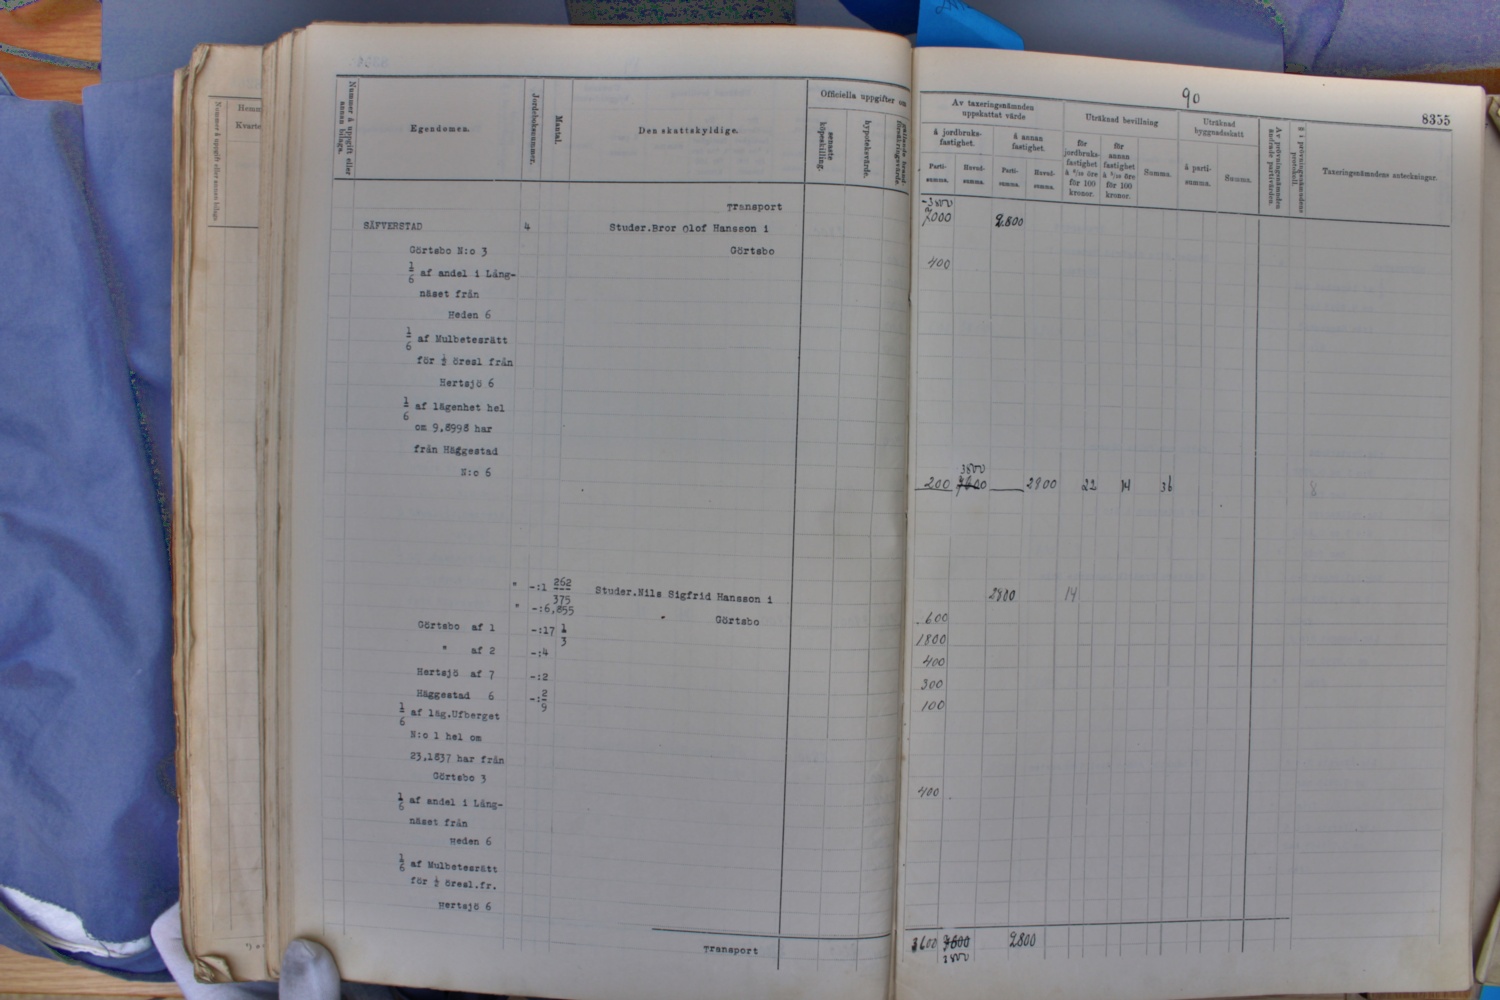 90
8355
Nummer å uppgift eller annan bilaga.
Egendomen.
Jordeboksnummer.
Mantal.
Den skattskyldige.
Officiella uppgifter om
senaste köpeskilling.
hypoteksvärde.
Av taxeringsnämnden uppskattat värde
å jordbruksfastighet.
å annan fastighet.
Parti-summa.
Huvud-summa.
Parti-summa.
Huvud-summa.
Uträknad bevillning
för jordbruksfastighet
för annan fastighet
för 100 kronor.
för 100 kronor.
Summa.
Uträknad byggnadsskatt
å parti-summa.
Summa.
Av prövningsnämnden ändrade partivärden.
§ i prövningsnämndens protokoll.
Taxeringsnämndens anteckningar.
Transport
SÄFVERSTAD 4 Studer.Bror Olof Hansson i 2800
Görtsbo N:o 3 Görtsbo
1/6 af andel i Lång- 400
näset från
Heden 6
1/6 af Mulbetesrätt
för ½ öresl från
Hertsjö 6
1/6 af lägenhet hel
om 9,8998 har
från Häggestad
N:o 6 200 3800 2900 22 14 36
" -:1 262/375 Studer.Nils Sigfrid Hansson i 2800 14
" -:6,855 Görtsbo 600
Görtsbo af 1 -:17 1/3 1800
" af 2 -:4 400
Hertsjö af 7 -:2 300
Häggestad 6 -:2/9 100
1/6 af läg.Ufberget
N:o 1 hel om
23,1837 har från
Görtsbo 3
1/6 af andel i Lång- 400
näset från
Heden 6
1/6 af Mulbetesrätt
för ½ öresl.fr.
Hertsjö 6
Transport 3600 2800